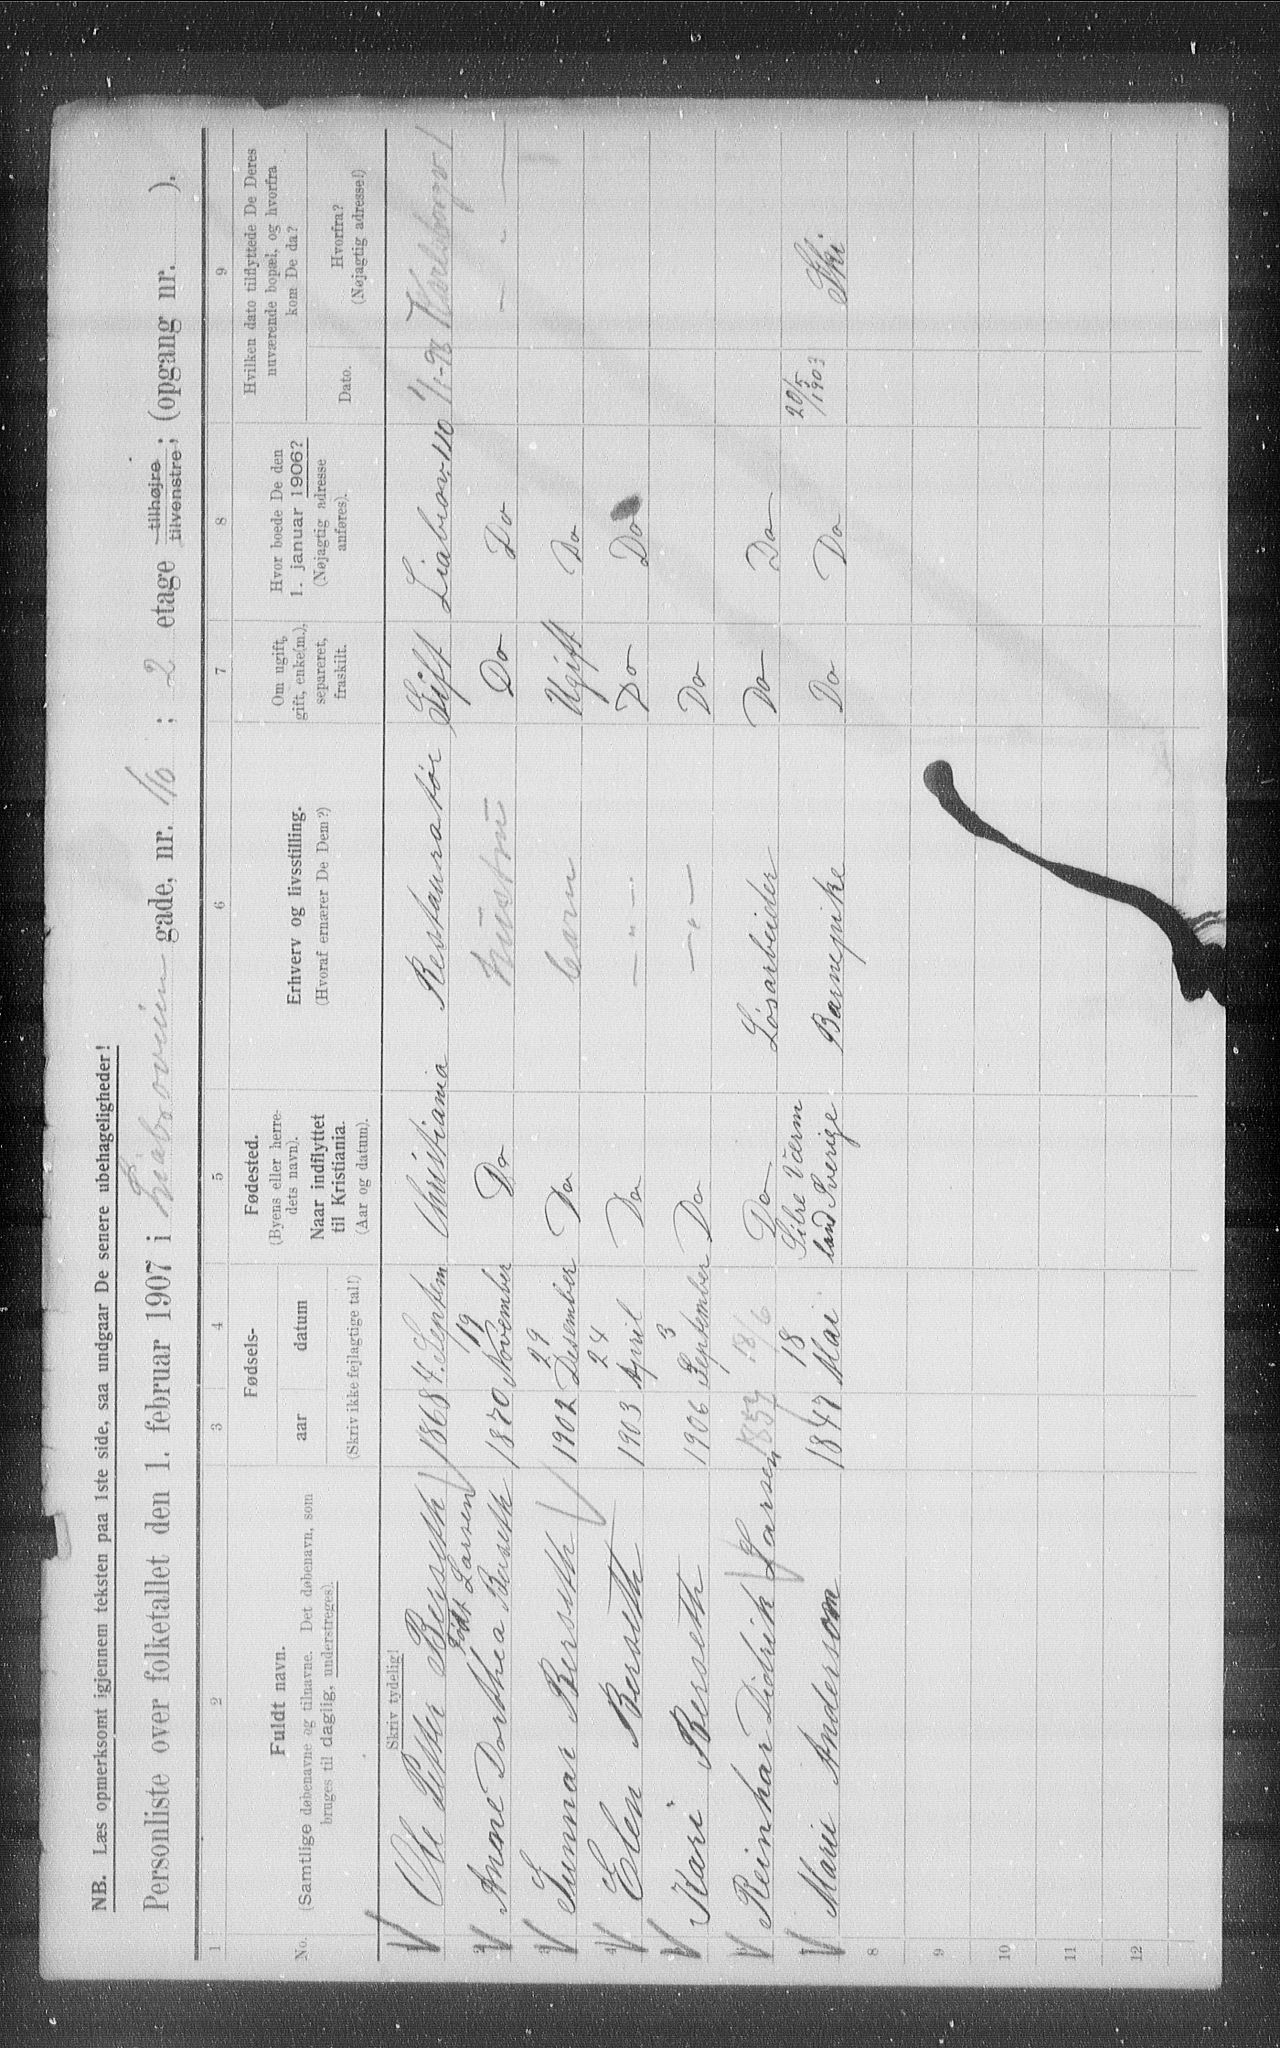 NB. Læs opmerksomt igjennem teksten paa 1ste side, saa undgaar De senere ubehageligheder!
Personliste over folketallet den 1. februar 1907 i Liabroveien gade, nr. 110 ; 2 etage tilhøjre tilvenstre; (opgang nr. ).
1 2 3 4 5 6 7 8 9
No.
Fuldt navn.
(Samtlige døbenavne og tilnavne. Det døbenavn, som
bruges til daglig, understreges).
Fødsels-
aar datum
(Skriv ikke fejlagtige tal!)
Fødested.
(Byens eller herre-
dets navn).
Naar indflyttet
til Kristiania.
(Aar og datum).
Erhverv og livsstilling.
(Hvoraf ernærer De Dem?)
Om ugift,
gift, enke(m.),
separeret,
fraskilt.
Hvor boede De den
1. januar 1906?
(Nøjagtig adresse
anføres).
Hvilken dato tilflyttede De Deres
nuværende bopæl, og hvorfra
kom De da?
Dato.
Hvorfra?
(Nøjagtig adresse!)
Skriv tydelig!
Ole Petter Berseth 1868 4. Septem Christiania Restauratør Gift Liabrov. 110 1/1-98 Karlsborgv. 1
født Larsen 19
Anne Dorthea Berseth 1870 November Do hustru Do Do — " —
29
Gunnar Berseth 1902 Desember Do barn Ugift Do
24
Elen Berseth 1903 April Do — " — Do Do
3
Kari Berseth 1906 September Do — " — Do
Reinhar Didrik Larsen 1857 18/6 Do Løsarbeider Do Do
18 Silre Værm 20/5 1903
Marie Anderson 1847 Mai land Sverige Barnepike Do Do Ski
8
9
10
11
12